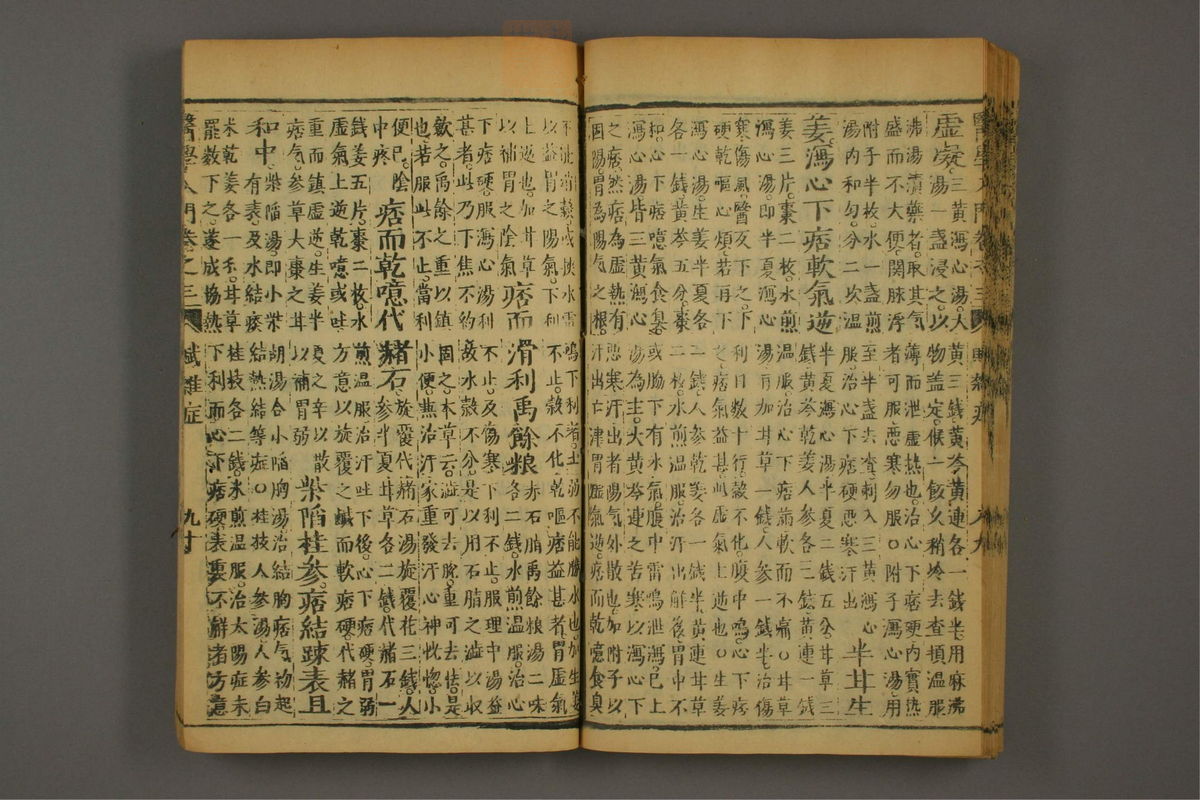 虛凝三黃瀉心湯大黃三錢黃芩黃連各一錢半用麻沸
湯一盞浸之以物蓋定候一飯久稍冷去查頓溫服
沸湯漬藥者取其氣薄而泄虛熱也治心下痞硬內實熱
盛而不大便關脉浮者可服惡寒勿服○附子瀉心湯用
附子半枚水一盞煎至半盞去查剌入三黃瀉心
湯內和勻分二次溫服治心下痞硬惡寒汗出半甘生
姜瀉心下痞軟氣逆半夏瀉心湯半夏二錢五分甘草三
錢黃芩乾姜人參各三錢黃連一錢
姜三片棗二枚水煎溫服治心下痞滿軟而不痛○甘草
瀉心湯即半夏瀉心湯內加甘草一錢人參一錢半治傷
寒傷風醫反下之下利日數十行穀不化腹中鳴心下痞
硬乾嘔心煩若再下之痞氣益甚此虛氣上逆也○生姜
瀉心湯生姜半夏各二錢人參乾姜各一錢半黃連甘草
各一錢黃芩五分棗二枚水煎溫服治汗出解後胃中不
和心下痞噫氣食臭或脇下有水氣腹中雷鳴泄瀉已上
瀉心湯皆三黃瀉心湯為主大黃芩連之苦寒以瀉心下
之痞然痞為虛熱有惡寒汗出者陽氣外散也加附子以
固陽胃為陽氣之根汗出亡津胃虛氣逆痞而乾噫食臭
不消穀或挾水雷鳴下利者土弱不能勝水也加生姜
以益胃之陽氣下利不止穀不化乾嘔痞益甚者胃虛氣
上逆也加甘草
以補胃之陰氣痞而滑利禹餘粮赤石脂禹餘粮湯二味
各二錢水煎溫服治心
下痞硬服瀉心湯利不止及傷寒下利不止服理中湯益
甚者此乃下焦不約故水穀不分是以用石脂之澁以收
歛之禹餘之重以鎮固之本草云澁可去脫重可去怯是
也若服此不止當利小便無治汗家重發汗心神恍惚小
便已陰
中疼痞而乾噫代赭石旋覆代赭石湯旋覆花三錢人
參半夏甘草各二錢代赭石一
錢姜五片棗二枚水煎溫服治汗吐下後心下痞硬胃弱
虛氣上逆乾噫或吐方意以旋覆之鹹而軟痞硬代赭之
重而鎮虛逆生姜半夏之辛以散
痞气參草大棗之甘以補胃弱柴陷桂參痞結踈表且
和中柴陷湯即小柴胡湯合小陷胸湯治結胸痞气初起
有表及水結痰結熱結等症○桂枝人參湯人參白
朮乾姜各一錢甘草桂枝各二錢水煎溫服治太陽症未
罷數下之遂成協熱下利而心下痞硬表裏不解者方意
醫學入門卷之三 賦雜症 九十